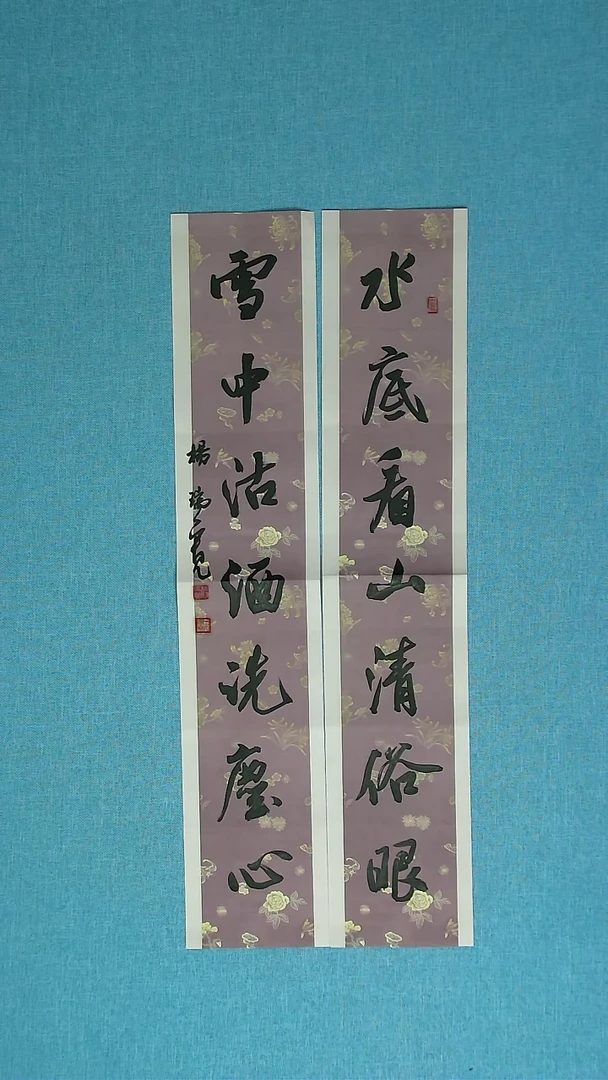 水底看山清俗眼
雪中沽酒洗塵心
楊瑞